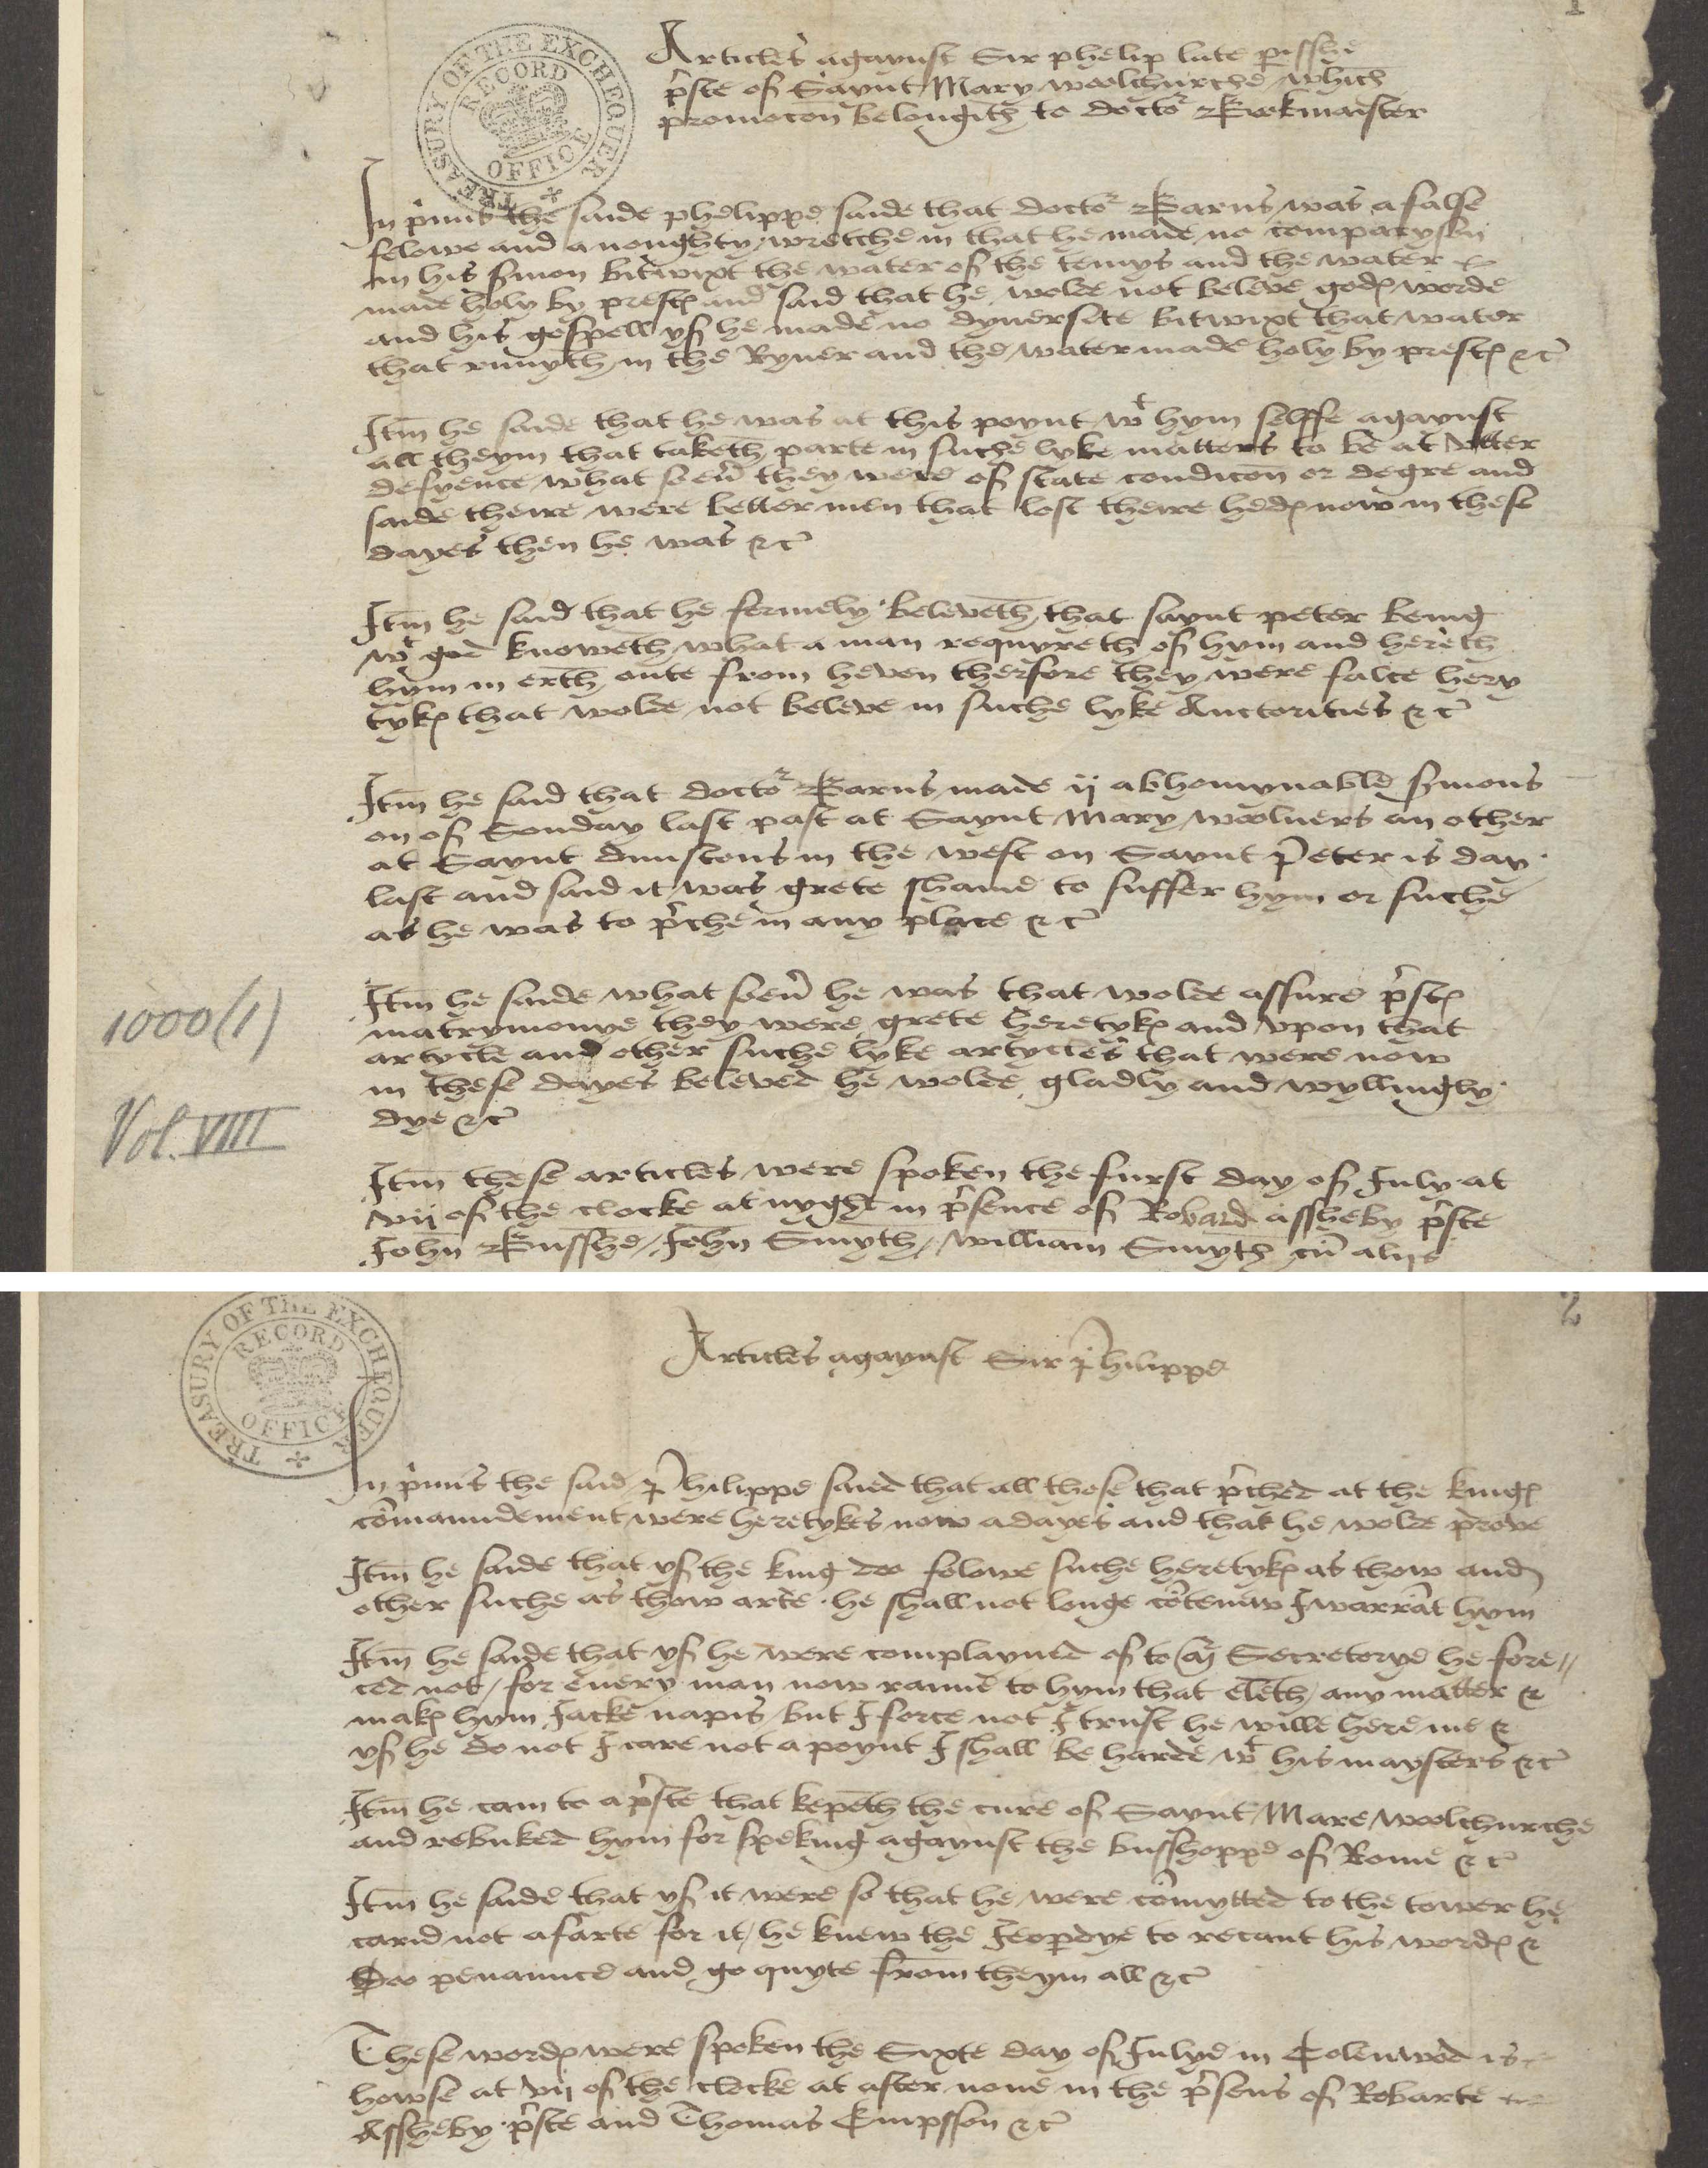 1
TREASURY OF THE EXCHEQUER
RECORD OFFICE
Articles agaynst Sir phelip late p̱isshe
p̃ste of Saynt Mary woolchurche / which
promocon̄ belongith to doctoͬ Birkmaister
In p̃imis the saide phelippe saide that doctoͬ Barns was a false
felowe and a noughty wretche in that he made no comparyson
in his s̃mon bitwixt the water of the temys and the water
made holy by prestꝭ and said that he wolde not beleve godꝭ worde
and his gospell yf he made no dyuersite bitwixt that water
that runyth in the Ryuer and the water made holy by prestꝭ &c̃
Itm̄ he saide that he was at this poynt wᵗ hym selffe agaynst
all theym that taketh parte in suche lyke matters to be at vtter
defyence what soeũ they were of state condicon or degre and
saide theire were better men that lost theire hedꝭ now in these
dayes then he was &c̃
Itm̄ he said that he fermely beleveth that saynt peter being
wᵗ god knoweth what a man requyreth of hym and hereth
hym in erth oute from heven therfore they were false hery
tykꝭ that wolde not beleve in suche lyke Auctorities &c̃
Itm̄ he said that doctoͬ Barns made ij abhomynable s̃mons
on of Sonday last past at Saynt Mary wolners an other
at Saynt dunstons in the west on Saynt Peter is day
last and said it was grete shame to suffer hym or suche
as he was to p̃che in any place &c̃
Itm̄ he saide what soeũ he was that wolde assure p̃stꝭ
matrymonye they were grete heretykꝭ and vpon that
artycle and other suche lyke artycles that were now
in these dayes beleved he wolde gladly and wyllingly
dye &c̃
1000 (1)
Vol. VIII
Itm̄ these articles were spoken the furst day of July at
vij of the clocke at nyght in p̃sence of Robard assheby p̃ste
John̄ Busshe / John̄ Smyth / william Smyth cũ aliis
2
TREASURY OF THE EXCHEQUER
RECORD OFFICE
Articles agaynst Sir Philippe
In p̃imis the said Philippe saied that all those that p̃ched at the kingꝭ
cõmaundement were heretykes now a dayes and that he wolde prove
Itm̄ he saide that yf the king doo folowe suche heretykꝭ as thow and
other suche as thow arte he shall not longe cõtenuw I warrãt hym
Itm̄ he saide that yf he were complayned of to m̃ Secretorye he fore//
ced not / for euery man now ranne to hym that eleth / any matter &
makꝭ hym Jacke napis / but I force not I trust he wille here me &
yf he do not I care not a poynt I shall be harde wᵗ his maysters &c̃
Itm̄ he cam to a p̃ste that kepeth the cure of Saynt Mare woolchurche
and rebuked hym for speking agaynst the busshoppe of Rome &c̃
Itm̄ he saide that yf it were so that he were cõmytted to the tower he
carid not a farte for it / he knew the Ieop̱dye to recant his wordꝭ &
Doo penaunce and go quyte from theym all &c̃
These wordꝭ were spoken the Sixte day of Julye in Colenwod is
howse at vij of the clocke at after none in the p̃sens of Robarte
Assheby p̃ste and Thomas Empsson &c̃